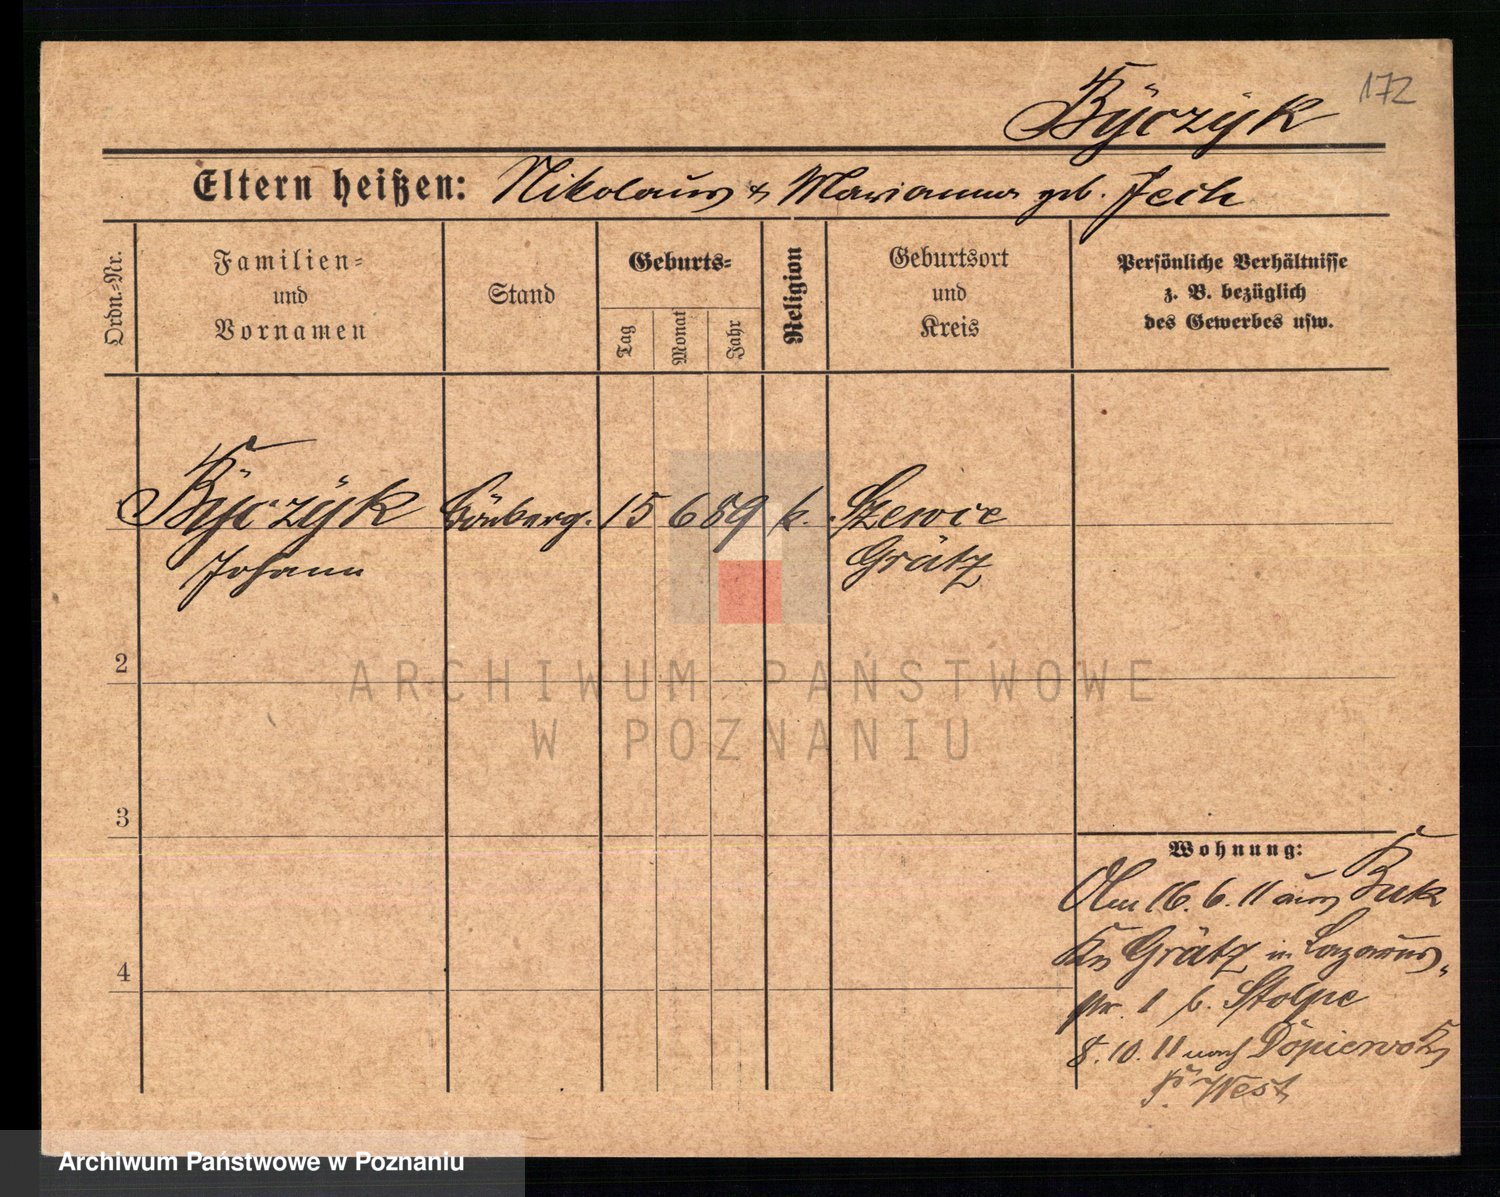 172
Byczyk
Eltern heißen: Nikolaus & Marianna geb. Jech
Ordn.-Nr.
Familien-
und
Vornamen
Stand
Geburts-
Tag
Monat
Jahr
Religion
Geburtsort
und
Kreis
Persönliche Verhältnisse
z. B. bezüglich
des Gewerbes usw.
Byczyk 15 6 89 k. Szewce
Johann Grätz
2
3
4
Wohnung:
Am 16.6.11 aus Buk
Krs Grätz in Lazarus-
str. 1 b. Stolpe
8.10.11 nach Dopiewo Krs
P. West
ARCHIWUM PAŃSTWOWE
W POZNANIU
Archiwum Państwowe w Poznaniu